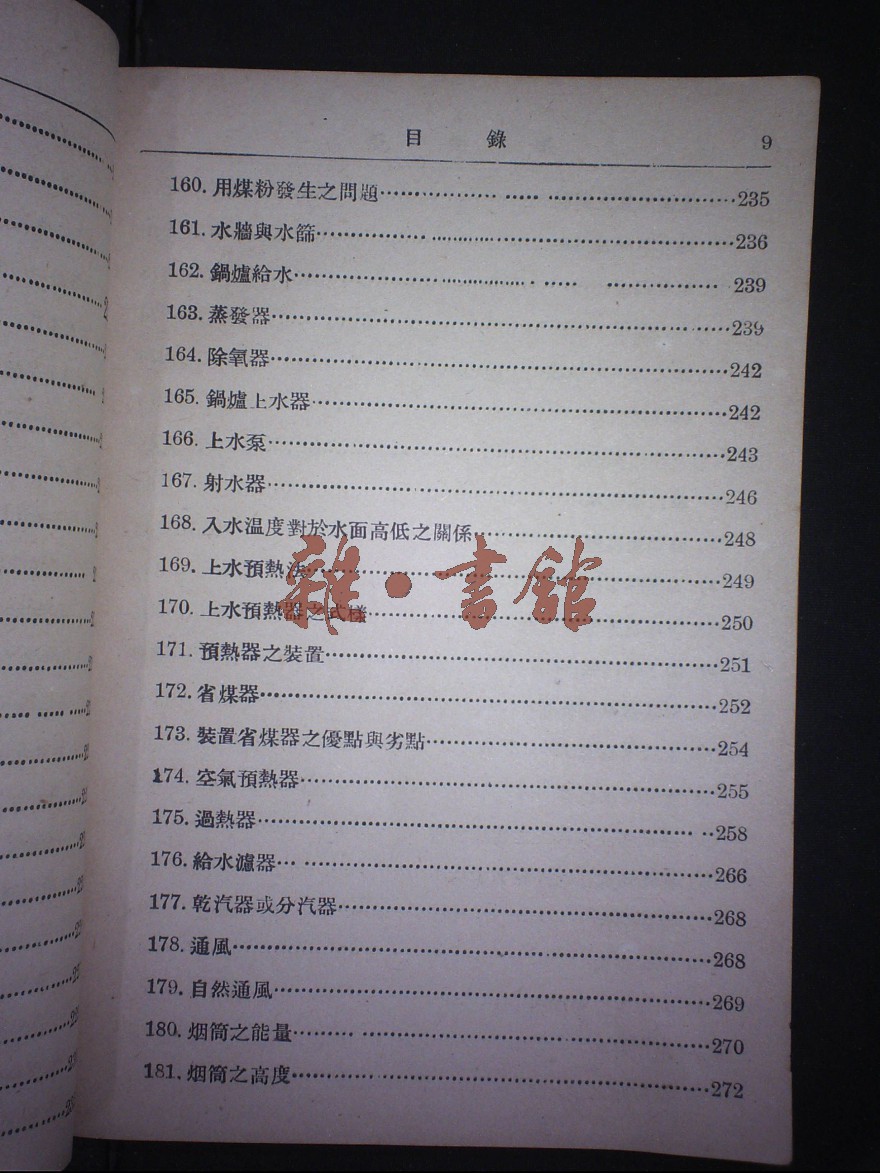 目 錄 9
160. 用煤粉發生之問題……235
161. 水牆與水篩……236
162. 鍋爐給水……239
163. 蒸發器……239
164. 除氧器……242
165. 鍋爐上水器……242
166. 上水泵……243
167. 射水器……246
168. 入水温度對於水面高低之關係……248
169. 上水預熱法……249
170. 上水預熱器之式樣……250
171. 預熱器之裝置……251
172. 省煤器……252
173. 裝置省煤器之優點與劣點……254
174. 空氣預熱器……255
175. 過熱器……258
176. 給水濾器……266
177. 乾汽器或分汽器……268
178. 通風……268
179. 自然通風……269
180. 烟筒之能量……270
181. 烟筒之高度……272
雜·書館